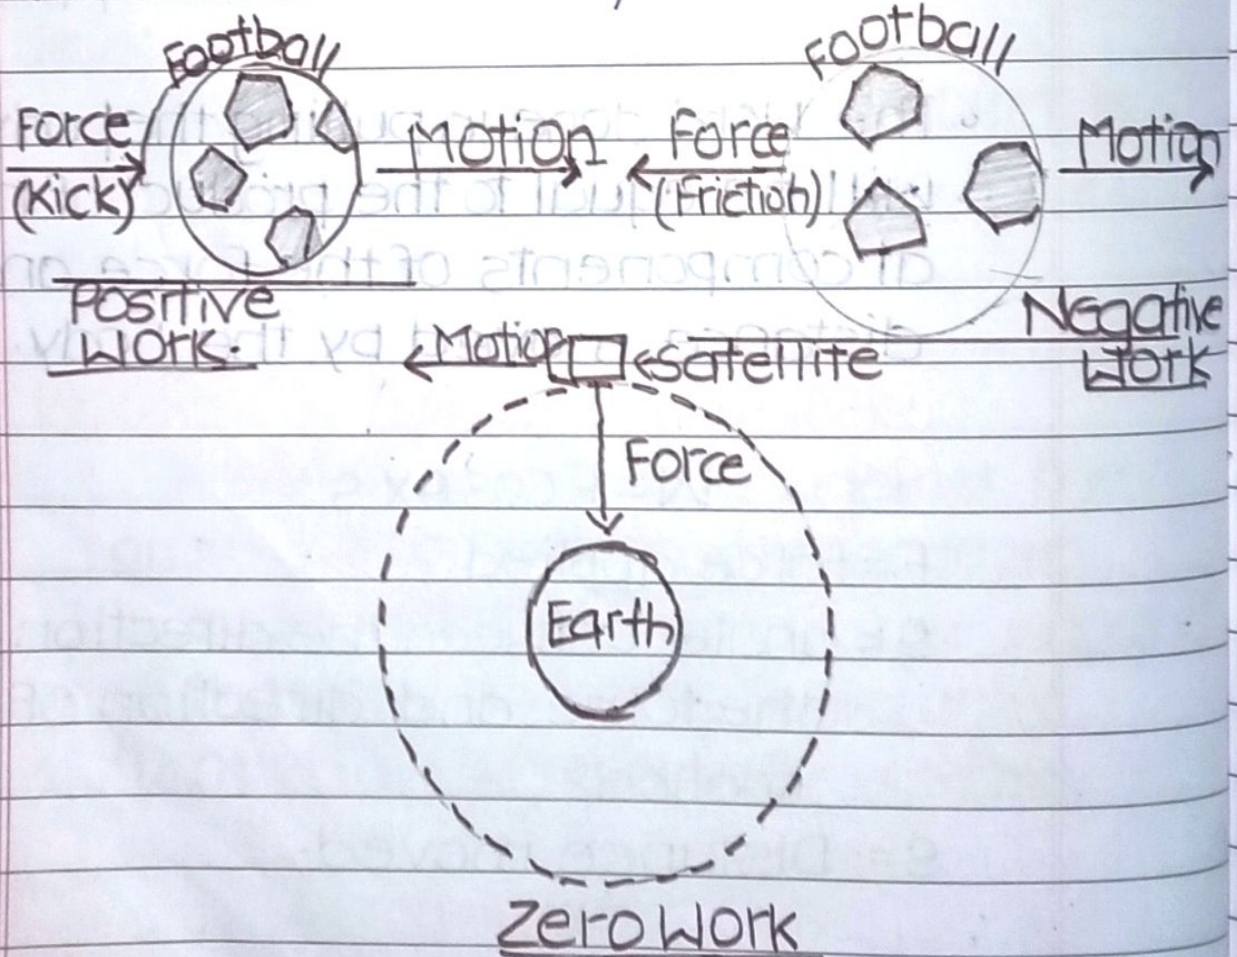 Football
Force
(Kick)
Motion
Positive
Work.
Football
Force
(Friction)
Motion
Negative
Work
Motion
Satellite
Force
Earth
Zero Work